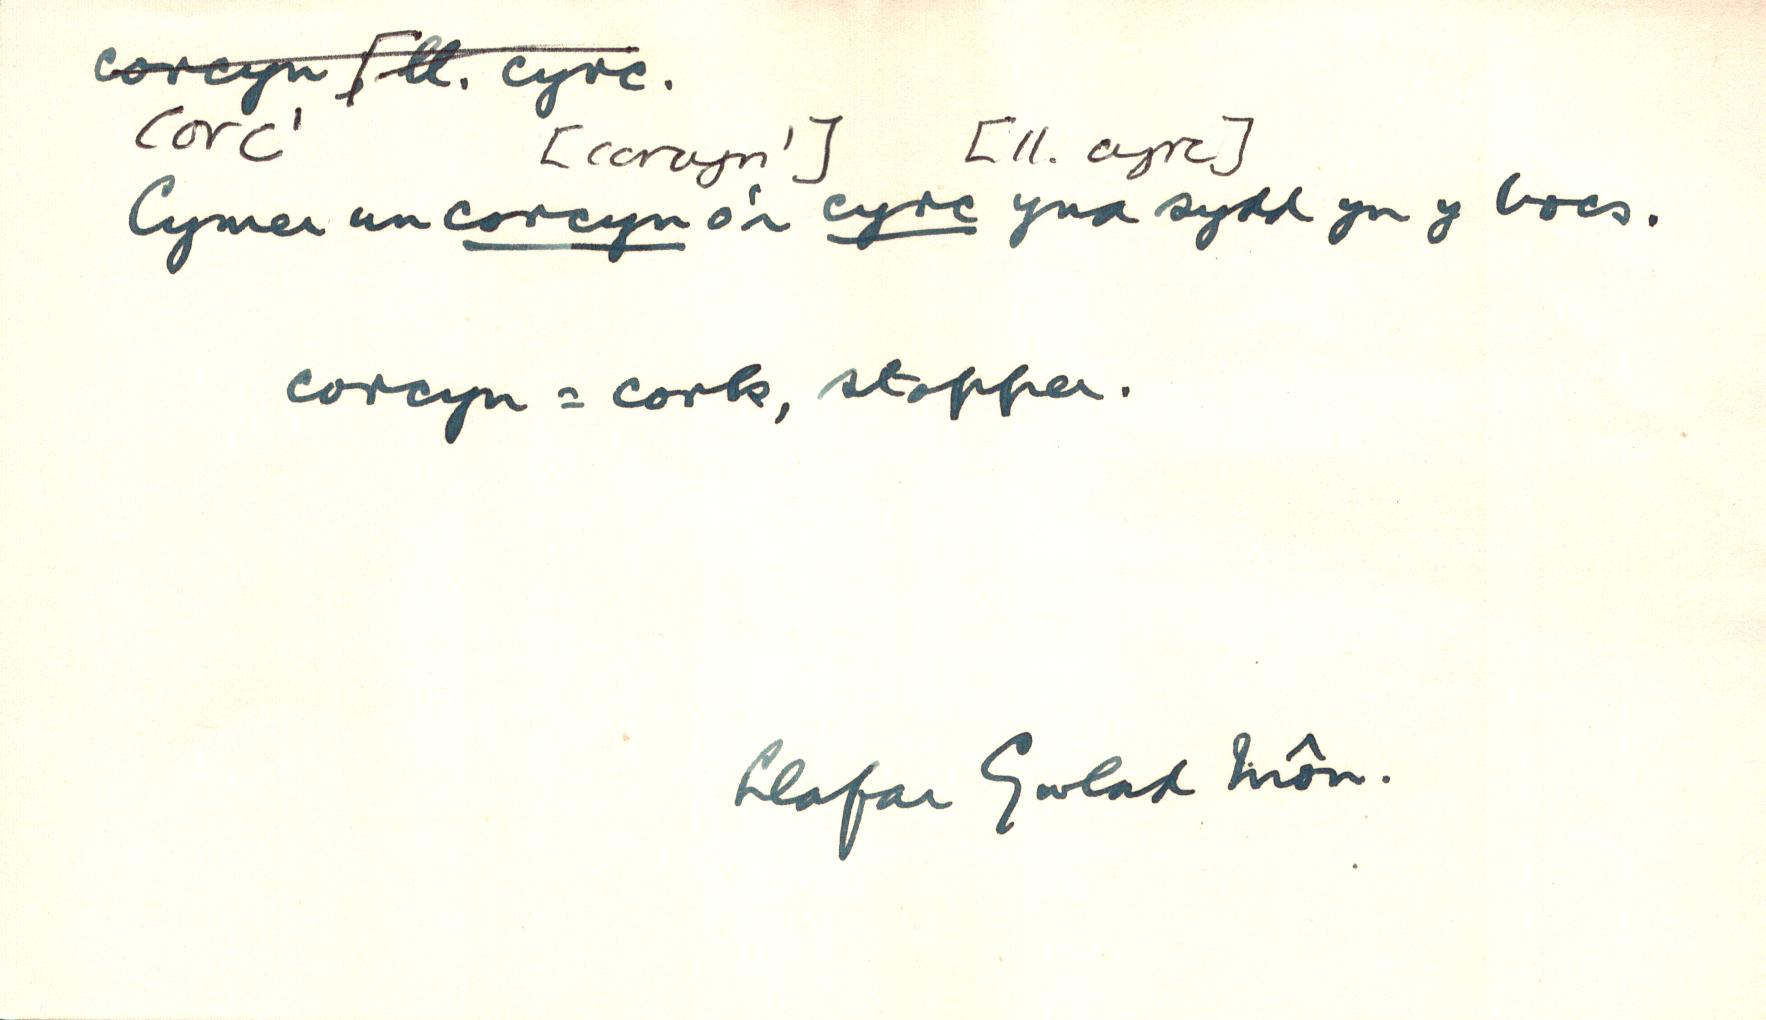 corcyn [ll. cyrc.
corc¹ [corcyn¹] [ll. cyrc]
Cymer un corcyn o'r cyrc yna sydd yn y bocs.
corcyn = cork, stopper.
Llafar Gwlad Môn.